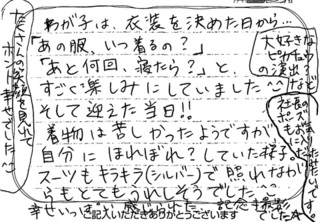 わが子は、衣装を決めた日から…
「あの服、いつ着るの？」
「あと何回、寝たら？」と、
すごく楽しみにしていました^^
そして迎えた当日!!
着物は苦しかったようですが
自分にほれぼれ？していた様子。
スーツもキラキラ(シルバー)で照れながら
らもとてもうれしそうでした^^
幸せいっぱい感じられた、記念撮影
でした
ご記入いただきありがとうございます
大好きな
たくさんの笑顔を見れて
ホント幸せでした^^